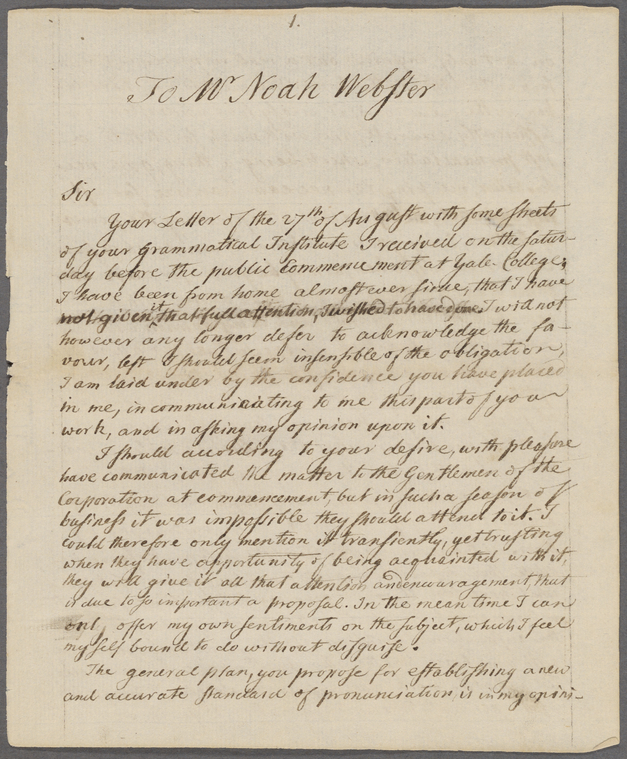 1.
To Mr Noah Webster
Sir
Your Letter of the 27th of August with some sheets
of your Grammatical Institute I received on the satur-
day before the public Commencement at Yale-College;
I have been from home almost ever since, that I have
not given it that full attention, I wished to have done. I will not
however any longer defer to acknowledge the fa-
vour, lest I should seem insensible of the obligation,
I am laid under by the confidence you have placed
in me, in communicating to me this part of your
work, and in asking my opinion upon it.
I should according to your desire, with pleasure
have communicated the matter to the Gentlemen of the
Corporation at commencement but in such a season of
business it was impossible they should attend to it. I
could therefore only mention it transiently, yet trusting
when they have opportunity of being acquainted with it,
they will give it all that attention and encouragement, that
is due to so important a proposal. In the mean time I can
only offer my own sentiments on the subject, which I feel
my self bound to do without disguise.
The general plan, you propose for establishing a new
and accurate standard of pronunciation is in my opini-